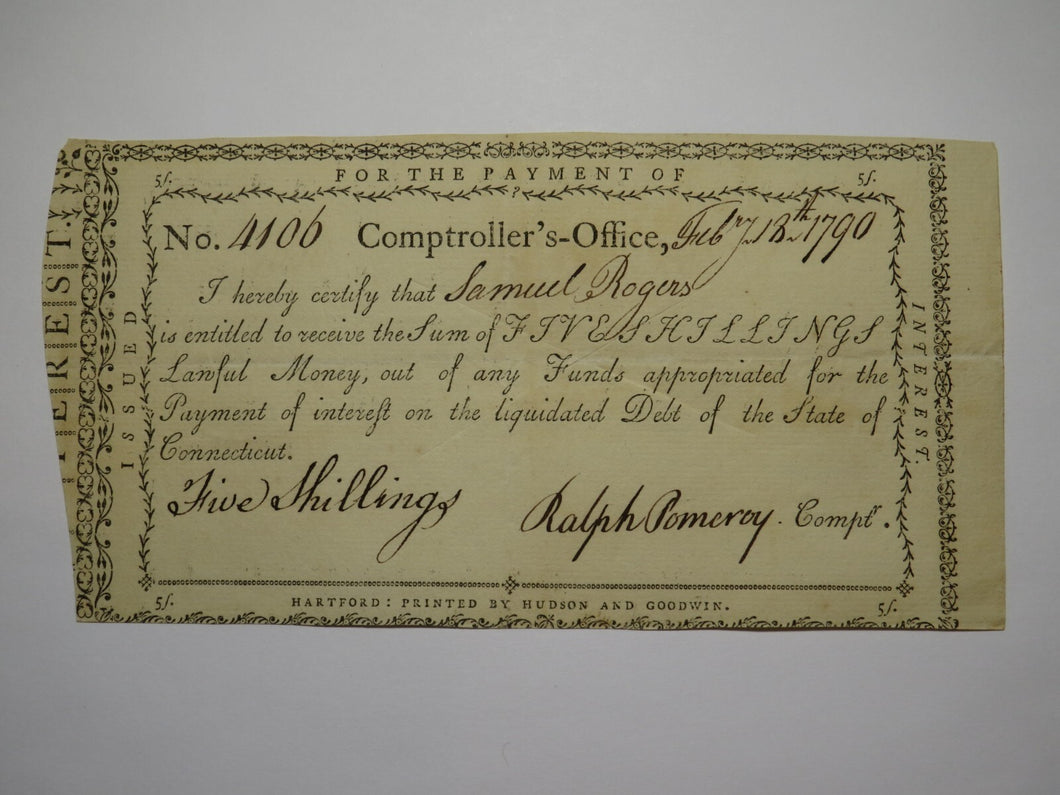 FOR THE PAYMENT OF
5ſ. 5ſ.
No. 4106 Comptroller's-Office, Febry 18th 1790
I hereby certify that Samuel Rogers
is entitled to receive the Sum of FIVE SHILLINGS
Lawful Money, out of any Funds appropriated for the
Payment of intereſt on the liquidated Debt of the State of
Connecticut.
Five Shillings Ralph Pomeroy Comptr.
5ſ. HARTFORD: PRINTED BY HUDSON AND GOODWIN. 5ſ.
ISSUED
INTEREST.
TEREST.